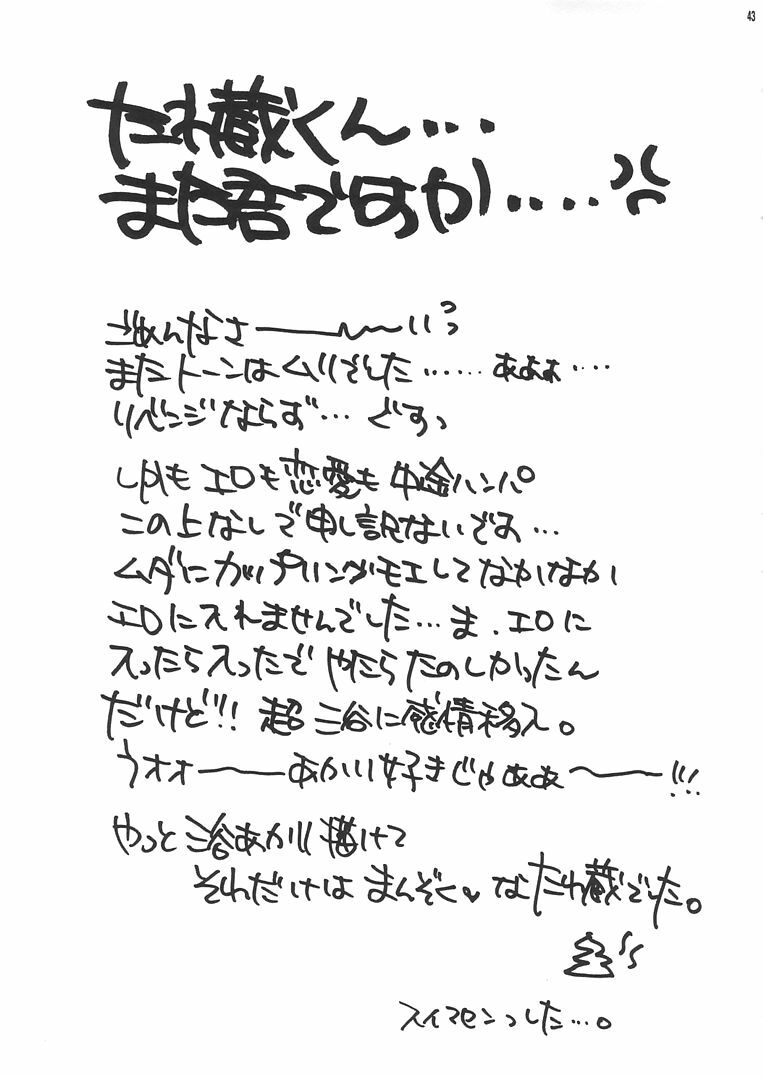 43
たれ蔵くん…
また君ですか‥‥
ごめんなさ――いっ
またトーンはムリでした……あああ…
リベンジならず…ですっ
しかもエロも恋愛も中途ハンパ。
この上なしで申し訳ないです…
ムダにカップリングがモエしてなかなか
エロに入れませんでした…ま、エロに
入ったら入ったで やたらたのしかったん
だけど!! 超 三谷に感情移入。
うオォ――あかり好きじゃああ――!!!
やっと三谷あかり描けて
それだけは まんぞく♥ なたれ蔵でした。
スイマセンっした…。